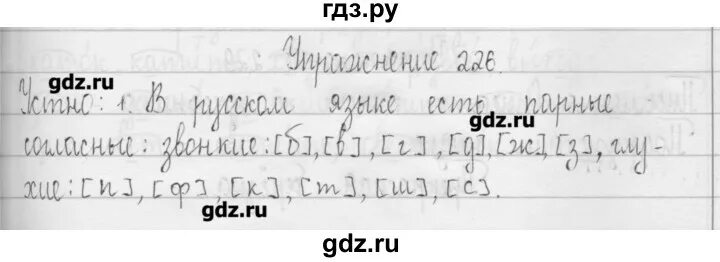 гдз.ру
Упражнение 226.
gdz.ru
Устно: 1. В русском языке есть парные
gdz.ru
согласные: звонкие: [б], [в], [г], [д], [ж], [з], глу-
хие: [п], [ф], [к], [т], [ш], [с].
gdz.ru
gdz.ru